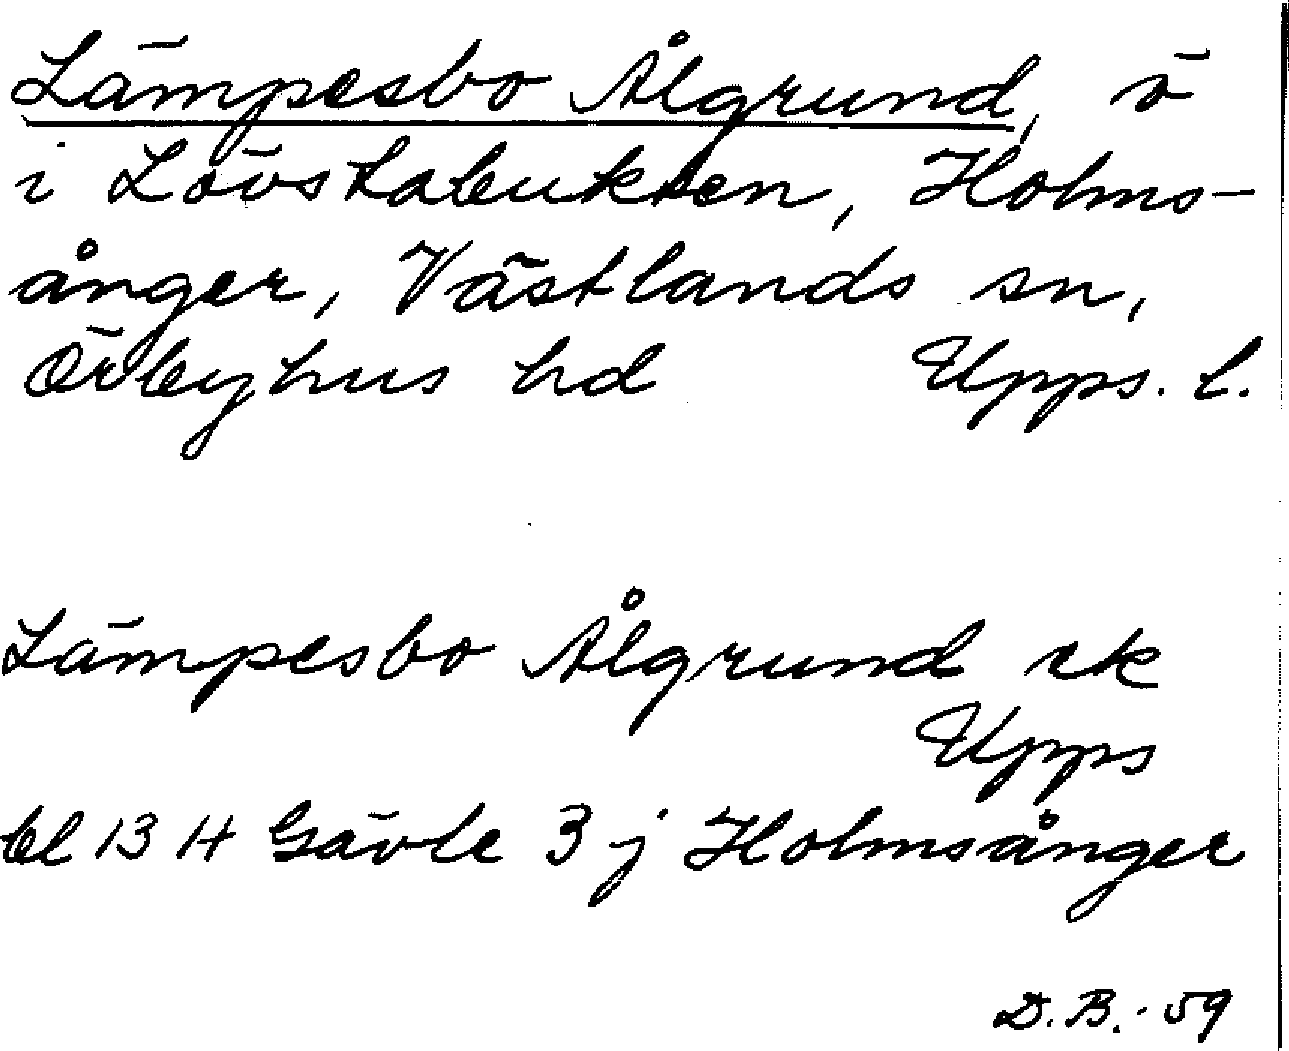 Lämpesbo Ålgrund, ö
i Lövstabukten, Holms-
ånger, Västlands sn,
Örbyhus hd Upps. l.
Lämpesbo Ålgrund ek
Upps
bl 13 H Gävle 3 j Holmsånger
D.B.-59